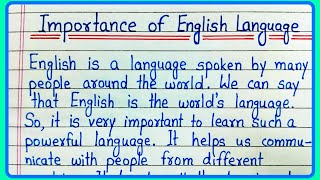 Importance of English Language
English is a language spoken by many
people around the world. We can say
that English is the world's language.
So, it is very important to learn such a
powerful language. It helps us commu-
nicate with people from different